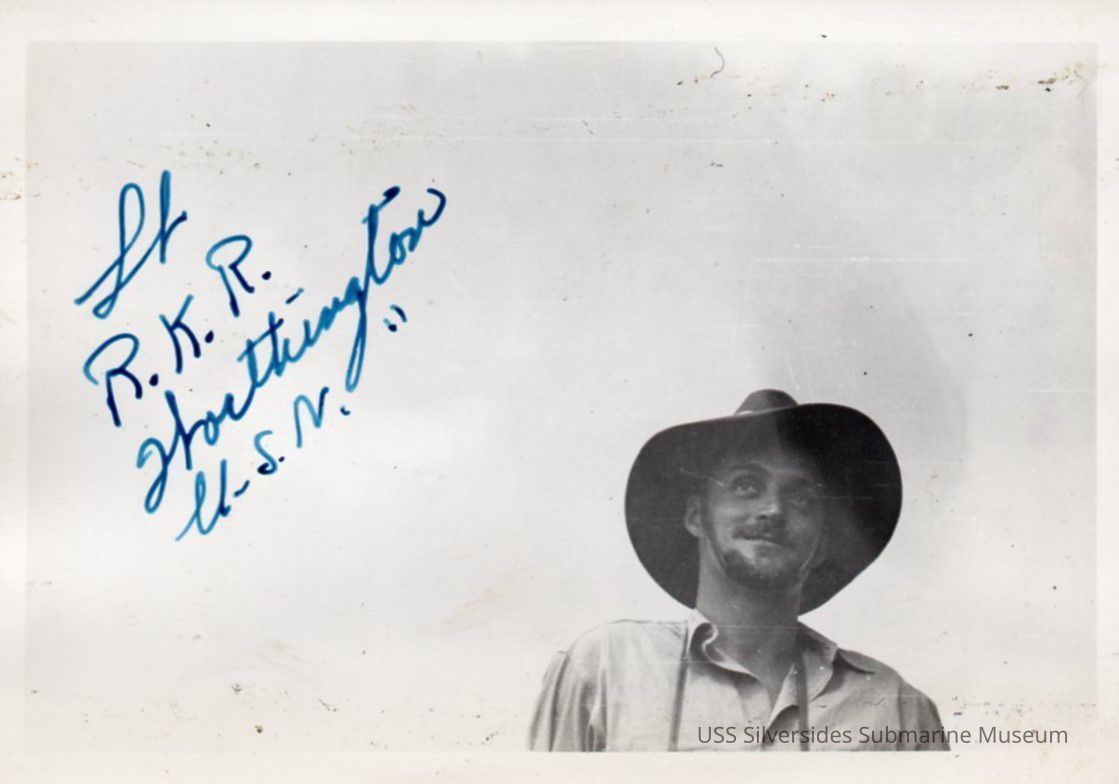 Lt
R. K. R.
Worthington
U.S.N.
USS Silversides Submarine Museum